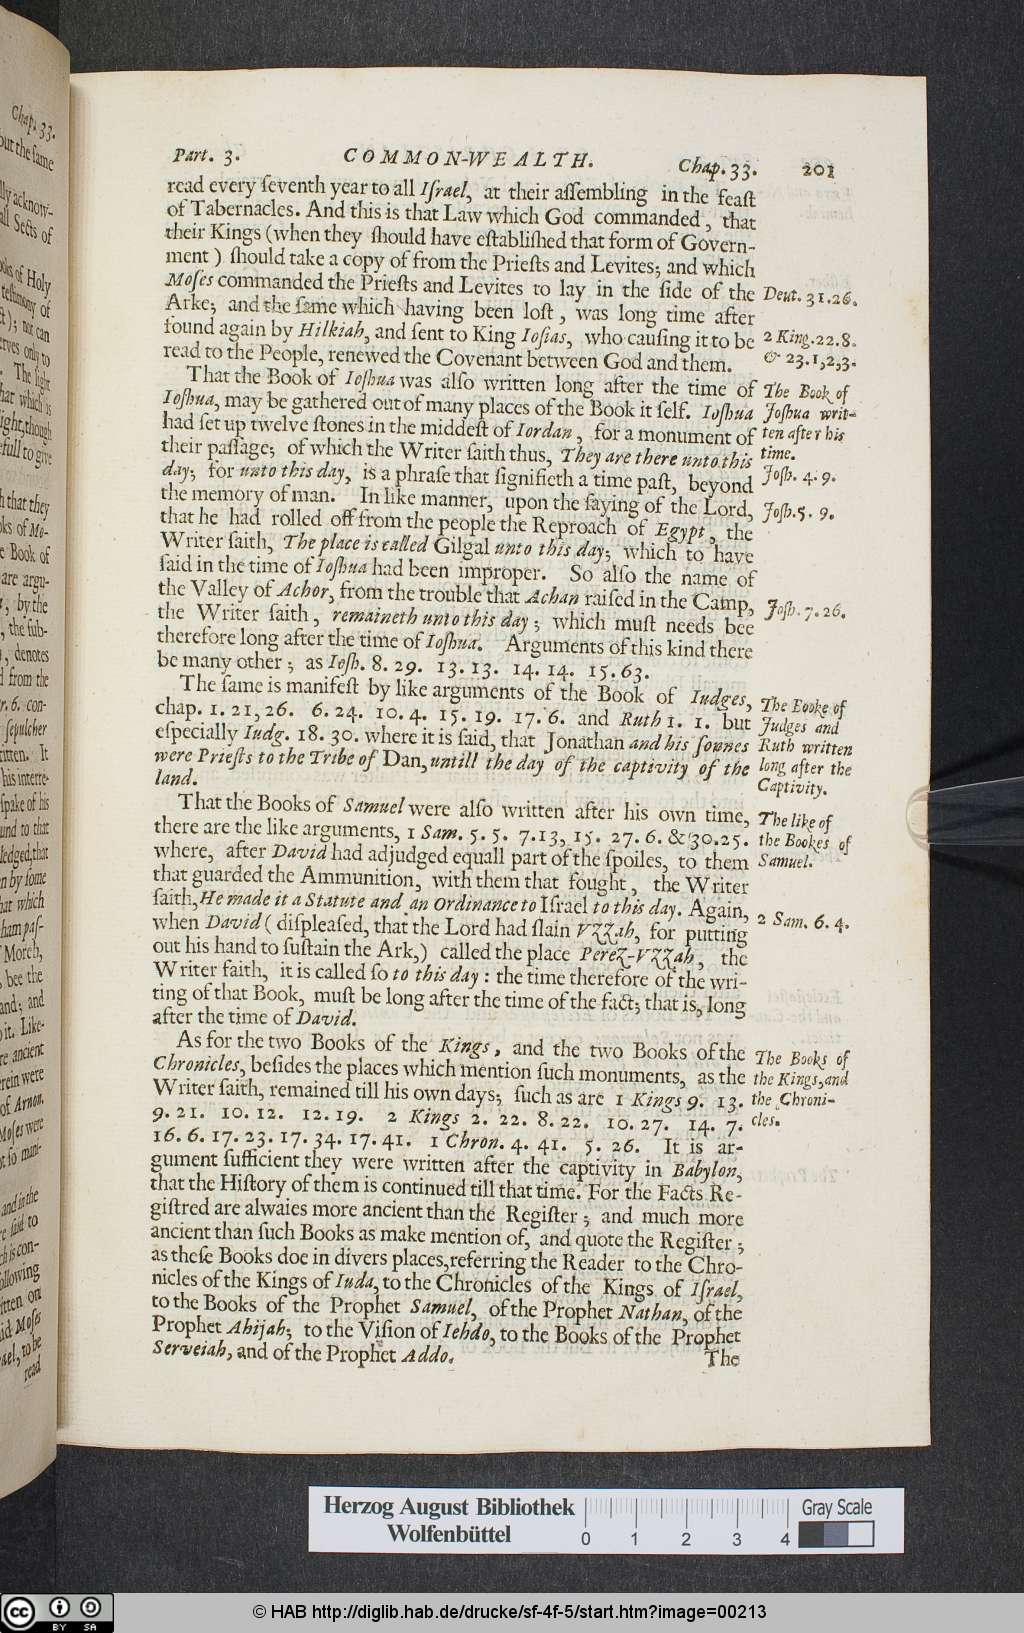 Part. 3. COMMON-WEALTH. Chap. 33. 201
read every ſeventh year to all Iſrael, at their aſſembling in the feaſt
of Tabernacles. And this is that Law which God commanded, that
their Kings (when they ſhould have eſtabliſhed that form of Govern-
ment) ſhould take a copy of from the Prieſts and Levites; and which
Moſes commanded the Prieſts and Levites to lay in the ſide of the
Arke; and the ſame which having been loſt, was long time after
found again by Hilkiah, and ſent to King Ioſias, who cauſing it to be
read to the People, renewed the Covenant between God and them.
Deut. 31.26.
2 King.22.8.
& 23.1,2,3.
That the Book of Ioſhua was alſo written long after the time of
Ioſhua, may be gathered out of many places of the Book it ſelf. Ioſhua
had ſet up twelve ſtones in the middeſt of Iordan, for a monument of
their paſſage; of which the Writer ſaith thus, They are there unto this
day; for unto this day, is a phraſe that ſignifieth a time paſt, beyond
the memory of man. In like manner, upon the ſaying of the Lord,
that he had rolled off from the people the Reproach of Egypt, the
Writer ſaith, The place is called Gilgal unto this day; which to have
ſaid in the time of Ioſhua had been improper. So alſo the name of
the Valley of Achor, from the trouble that Achan raiſed in the Camp,
the Writer ſaith, remaineth unto this day; which muſt needs bee
therefore long after the time of Ioſhua. Arguments of this kind there
be many other; as Ioſh. 8. 29. 13. 13. 14. 14. 15. 63.
The Book of
Joſhua writ-
ten after his
time.
Joſh. 4. 9.
Joſh. 5. 9.
Joſh. 7. 26.
The ſame is manifeſt by like arguments of the Book of Iudges,
chap. 1. 21, 26. 6. 24. 10. 4. 15. 19. 17. 6. and Ruth 1. 1. but
eſpecially Iudg. 18. 30. where it is ſaid, that Jonathan and his ſonnes
were Prieſts to the Tribe of Dan, untill the day of the captivity of the
land.
The Booke of
Judges and
Ruth written
long after the
Captivity.
That the Books of Samuel were alſo written after his own time,
there are the like arguments, 1 Sam. 5. 5. 7.13, 15. 27. 6. & 30.25.
where, after David had adjudged equall part of the ſpoiles, to them
that guarded the Ammunition, with them that fought, the Writer
ſaith, He made it a Statute and an Ordinance to Iſrael to this day. Again,
when David (diſpleaſed, that the Lord had ſlain Vzzah, for putting
out his hand to ſuſtain the Ark,) called the place Perez-Vzzah, the
Writer ſaith, it is called ſo to this day: the time therefore of the wri-
ting of that Book, muſt be long after the time of the fact; that is, long
after the time of David.
The like of
the Bookes of
Samuel.
2 Sam. 6. 4.
As for the two Books of the Kings, and the two Books of the
Chronicles, beſides the places which mention ſuch monuments, as the
Writer ſaith, remained till his own days; ſuch as are 1 Kings 9. 13.
9. 21. 10. 12. 12. 19. 2 Kings 2. 22. 8. 22. 10. 27. 14. 7.
16. 6. 17. 23. 17. 34. 17. 41. 1 Chron. 4. 41. 5. 26. It is ar-
gument ſufficient they were written after the captivity in Babylon,
that the Hiſtory of them is continued till that time. For the Facts Re-
giſtred are alwaies more ancient than the Regiſter; and much more
ancient than ſuch Books as make mention of, and quote the Regiſter;
as theſe Books doe in divers places, referring the Reader to the Chro-
nicles of the Kings of Iuda, to the Chronicles of the Kings of Iſrael,
to the Books of the Prophet Samuel, of the Prophet Nathan, of the
Prophet Ahijah; to the Viſion of Iehdo, to the Books of the Prophet
Serveiah, and of the Prophet Addo.
The
The Books of
the Kings, and
the Chroni-
cles.
Herzog August Bibliothek
Wolfenbüttel
0 1 2 3 4
Gray Scale
cc BY SA
© HAB http://diglib.hab.de/drucke/sf-4f-5/start.htm?image=00213